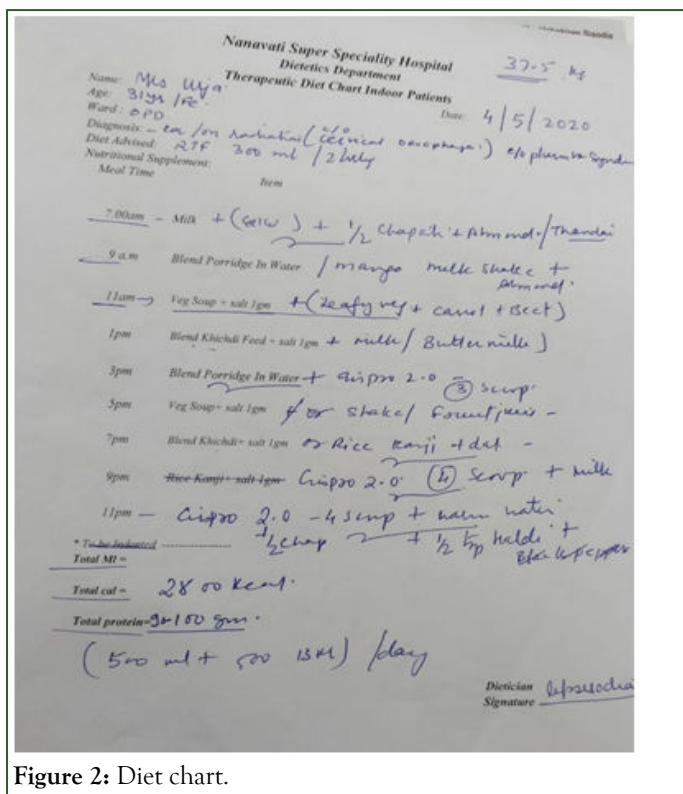 Nanavati Super Speciality Hospital
Dietetics Department
Therapeutic Diet Chart Indoor Patients
37.5 kg
Name: Mrs Urja
Age: 31yrs / Fe
Date: 4/5/2020
Ward: OPD
Diagnosis: - on radiation ( cervical c/o plummer
Diet Advised: RTF 300 ml / 2 hrly
Nutritional Supplement:
Meal Time Item
7.00am - Milk + ( ) + 1/2 Chapati + Almond / Thandai
9 a.m Blend Porridge In Water / mango milk shake + Almond.
11am Veg Soup + salt 1gm + (Leafy veg + carrot + Beet)
1pm Blend Khichdi Feed + salt 1gm + milk / Butter milk )
3pm Blend Porridge In Water + 2.0 - 3 scoop.
5pm Veg Soup+ salt 1gm or shake /
7pm Blend Khichdi+ salt 1gm or Rice Kanji + dal -
9pm Rice Kanji+ salt 1gm Crispro 2.0 (4) scoop + milk
11pm - Crispro 2.0 - 4 scoop + warm water
+ 1/2 chap + 1/2 tsp Haldi + Black pepper
* To be Indented
Total Ml =
Total cal = 2800 Kcal.
Total protein= 90-100 gm.
(500 ml + 500 ) /day
Dietician
Signature
Figure 2: Diet chart.